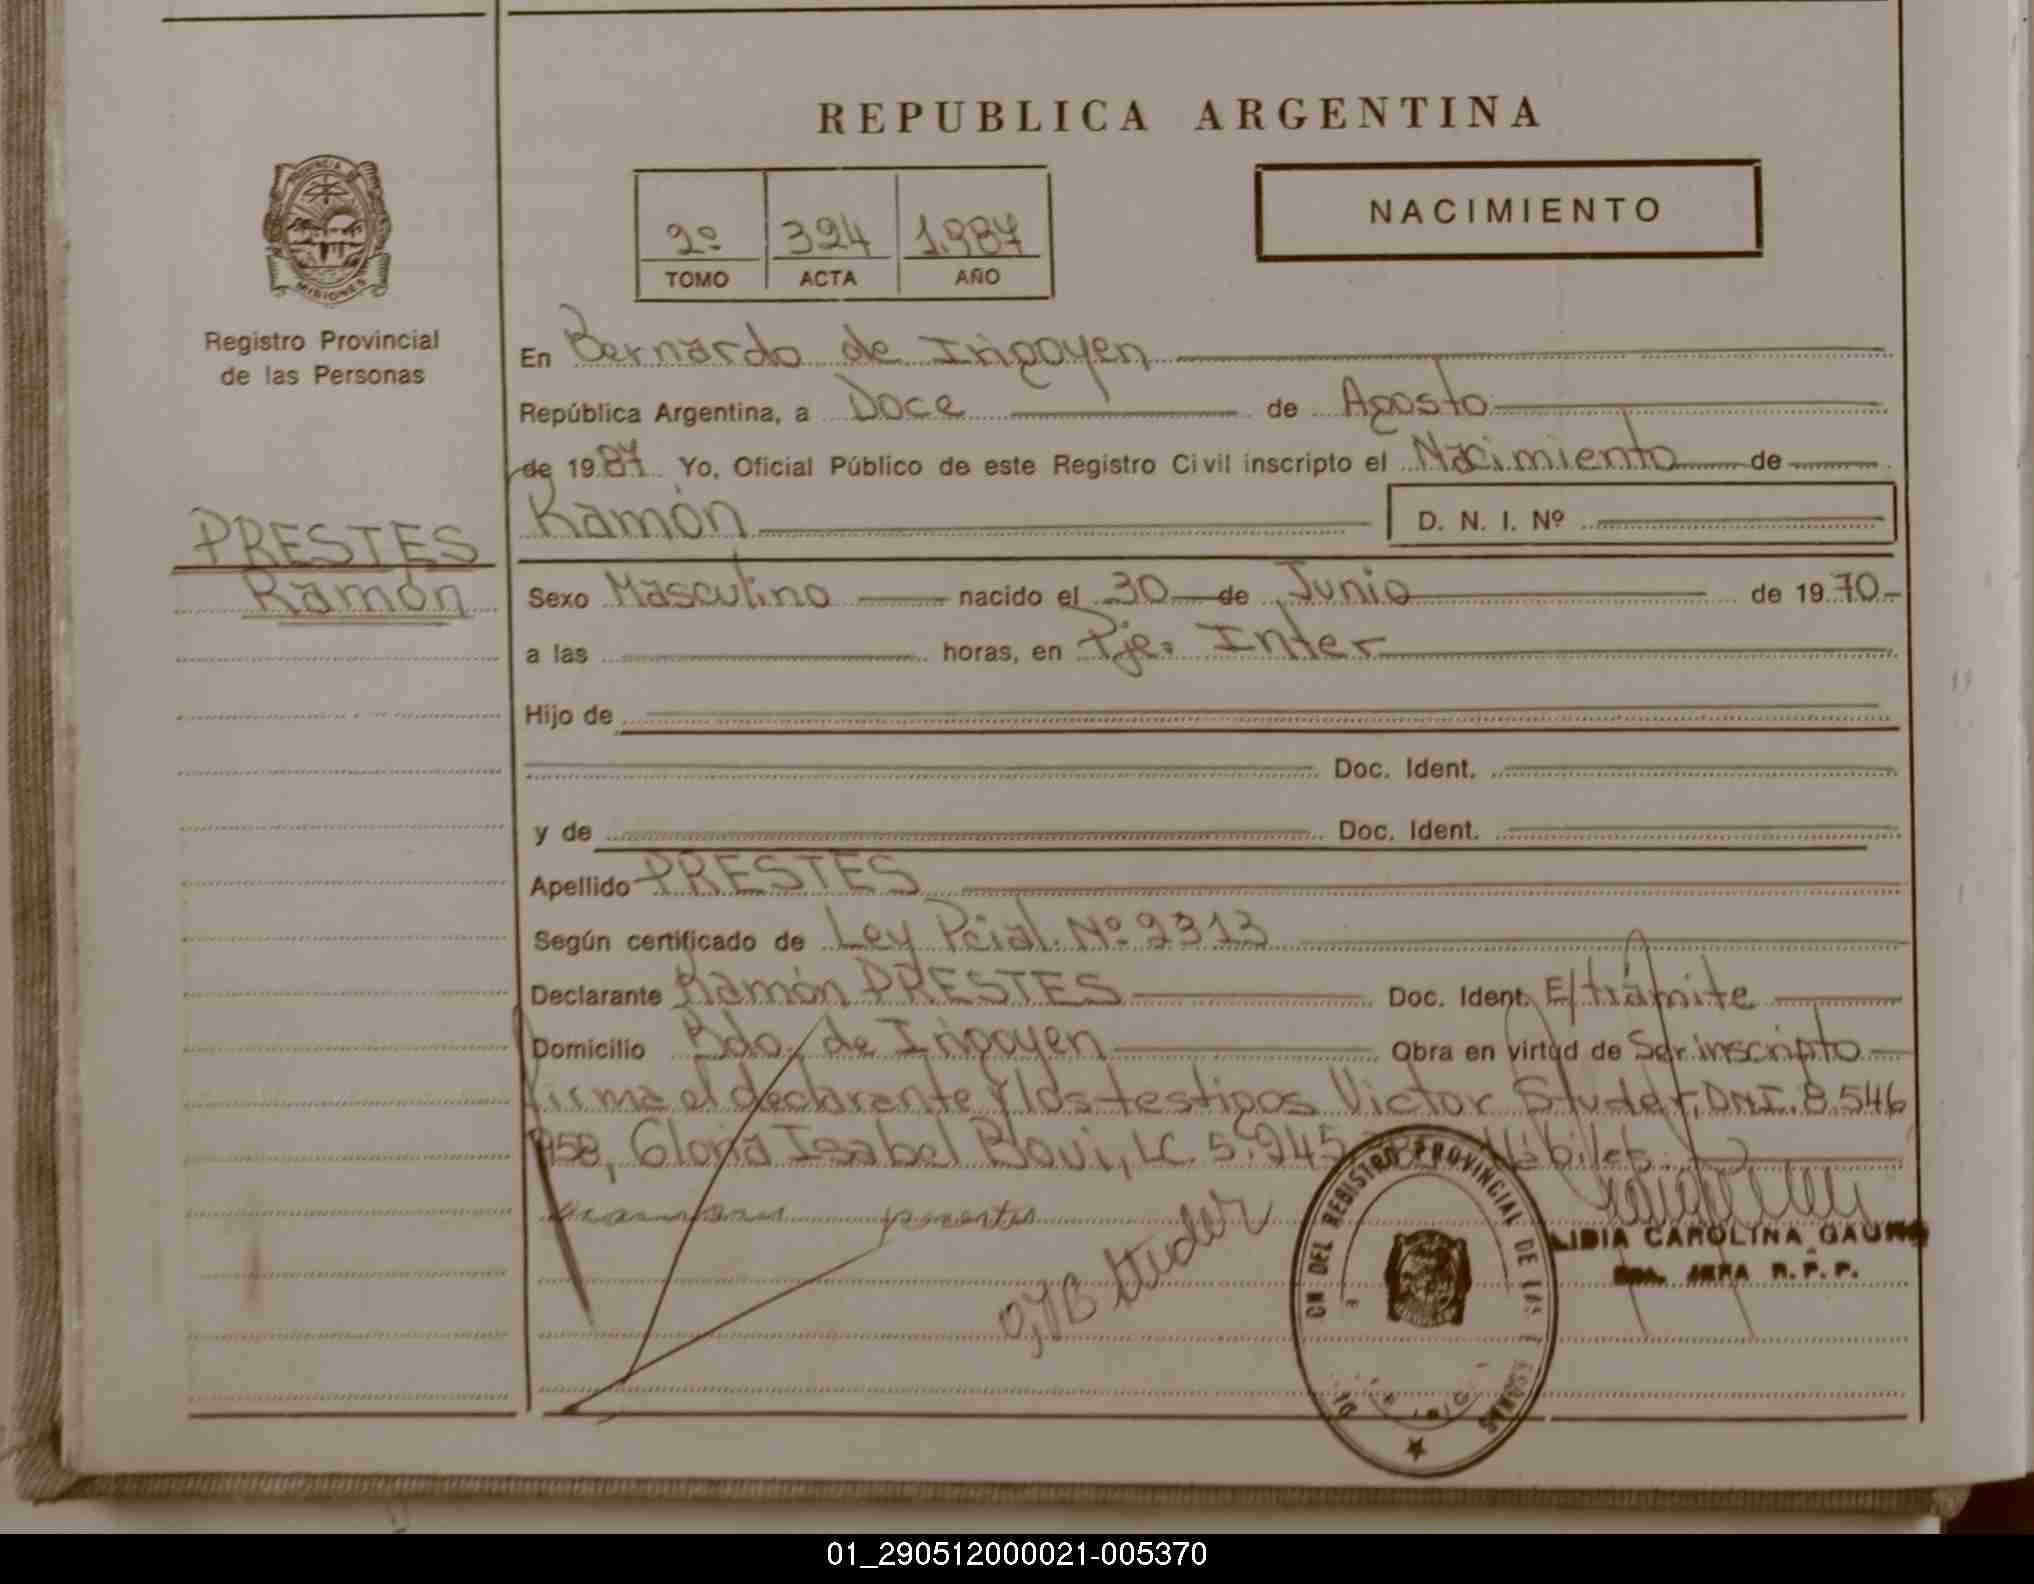 REPUBLICA ARGENTINA
NACIMIENTO
2º 324 1.987
TOMO ACTA AÑO
PROVINCIA DE
MISIONES
Registro Provincial
de las Personas
PRESTES
Ramón
En Bernardo de Irigoyen
República Argentina, a Doce de Agosto
de 19 87 Yo, Oficial Público de este Registro Civil inscripto el Nacimiento de
Ramón D. N. I. Nº
Sexo Masculino nacido el 30 de Junio de 19 70
a las horas, en Pje. Inter
Hijo de
Doc. Ident.
y de Doc. Ident.
Apellido PRESTES
Según certificado de Ley Pcial. Nº 2313
Declarante Ramón PRESTES Doc. Ident. E/trámite
Domicilio Bdo. de Irigoyen Obra en virtud de Ser inscripto
firma el declarante y los testigos Victor Studer, DNI. 8.546
958, Gloria Isabel Bovi, LC. 5.945 Hábiles.
Studer
REGISTRO PROVINCIAL DE LAS
LIDIA CAROLINA GAUNA
JEFA R. P. P.
01_290512000021-005370